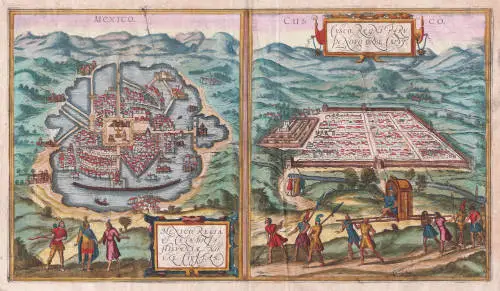 MEXICO.
CUS CO.
CUSCO, REGNI PERV
IN NOVO ORBE CAPVT.
MEXICO, REGIA
ET CELEBRIS
HISPANIÆ NO
VAE CIVITAS.